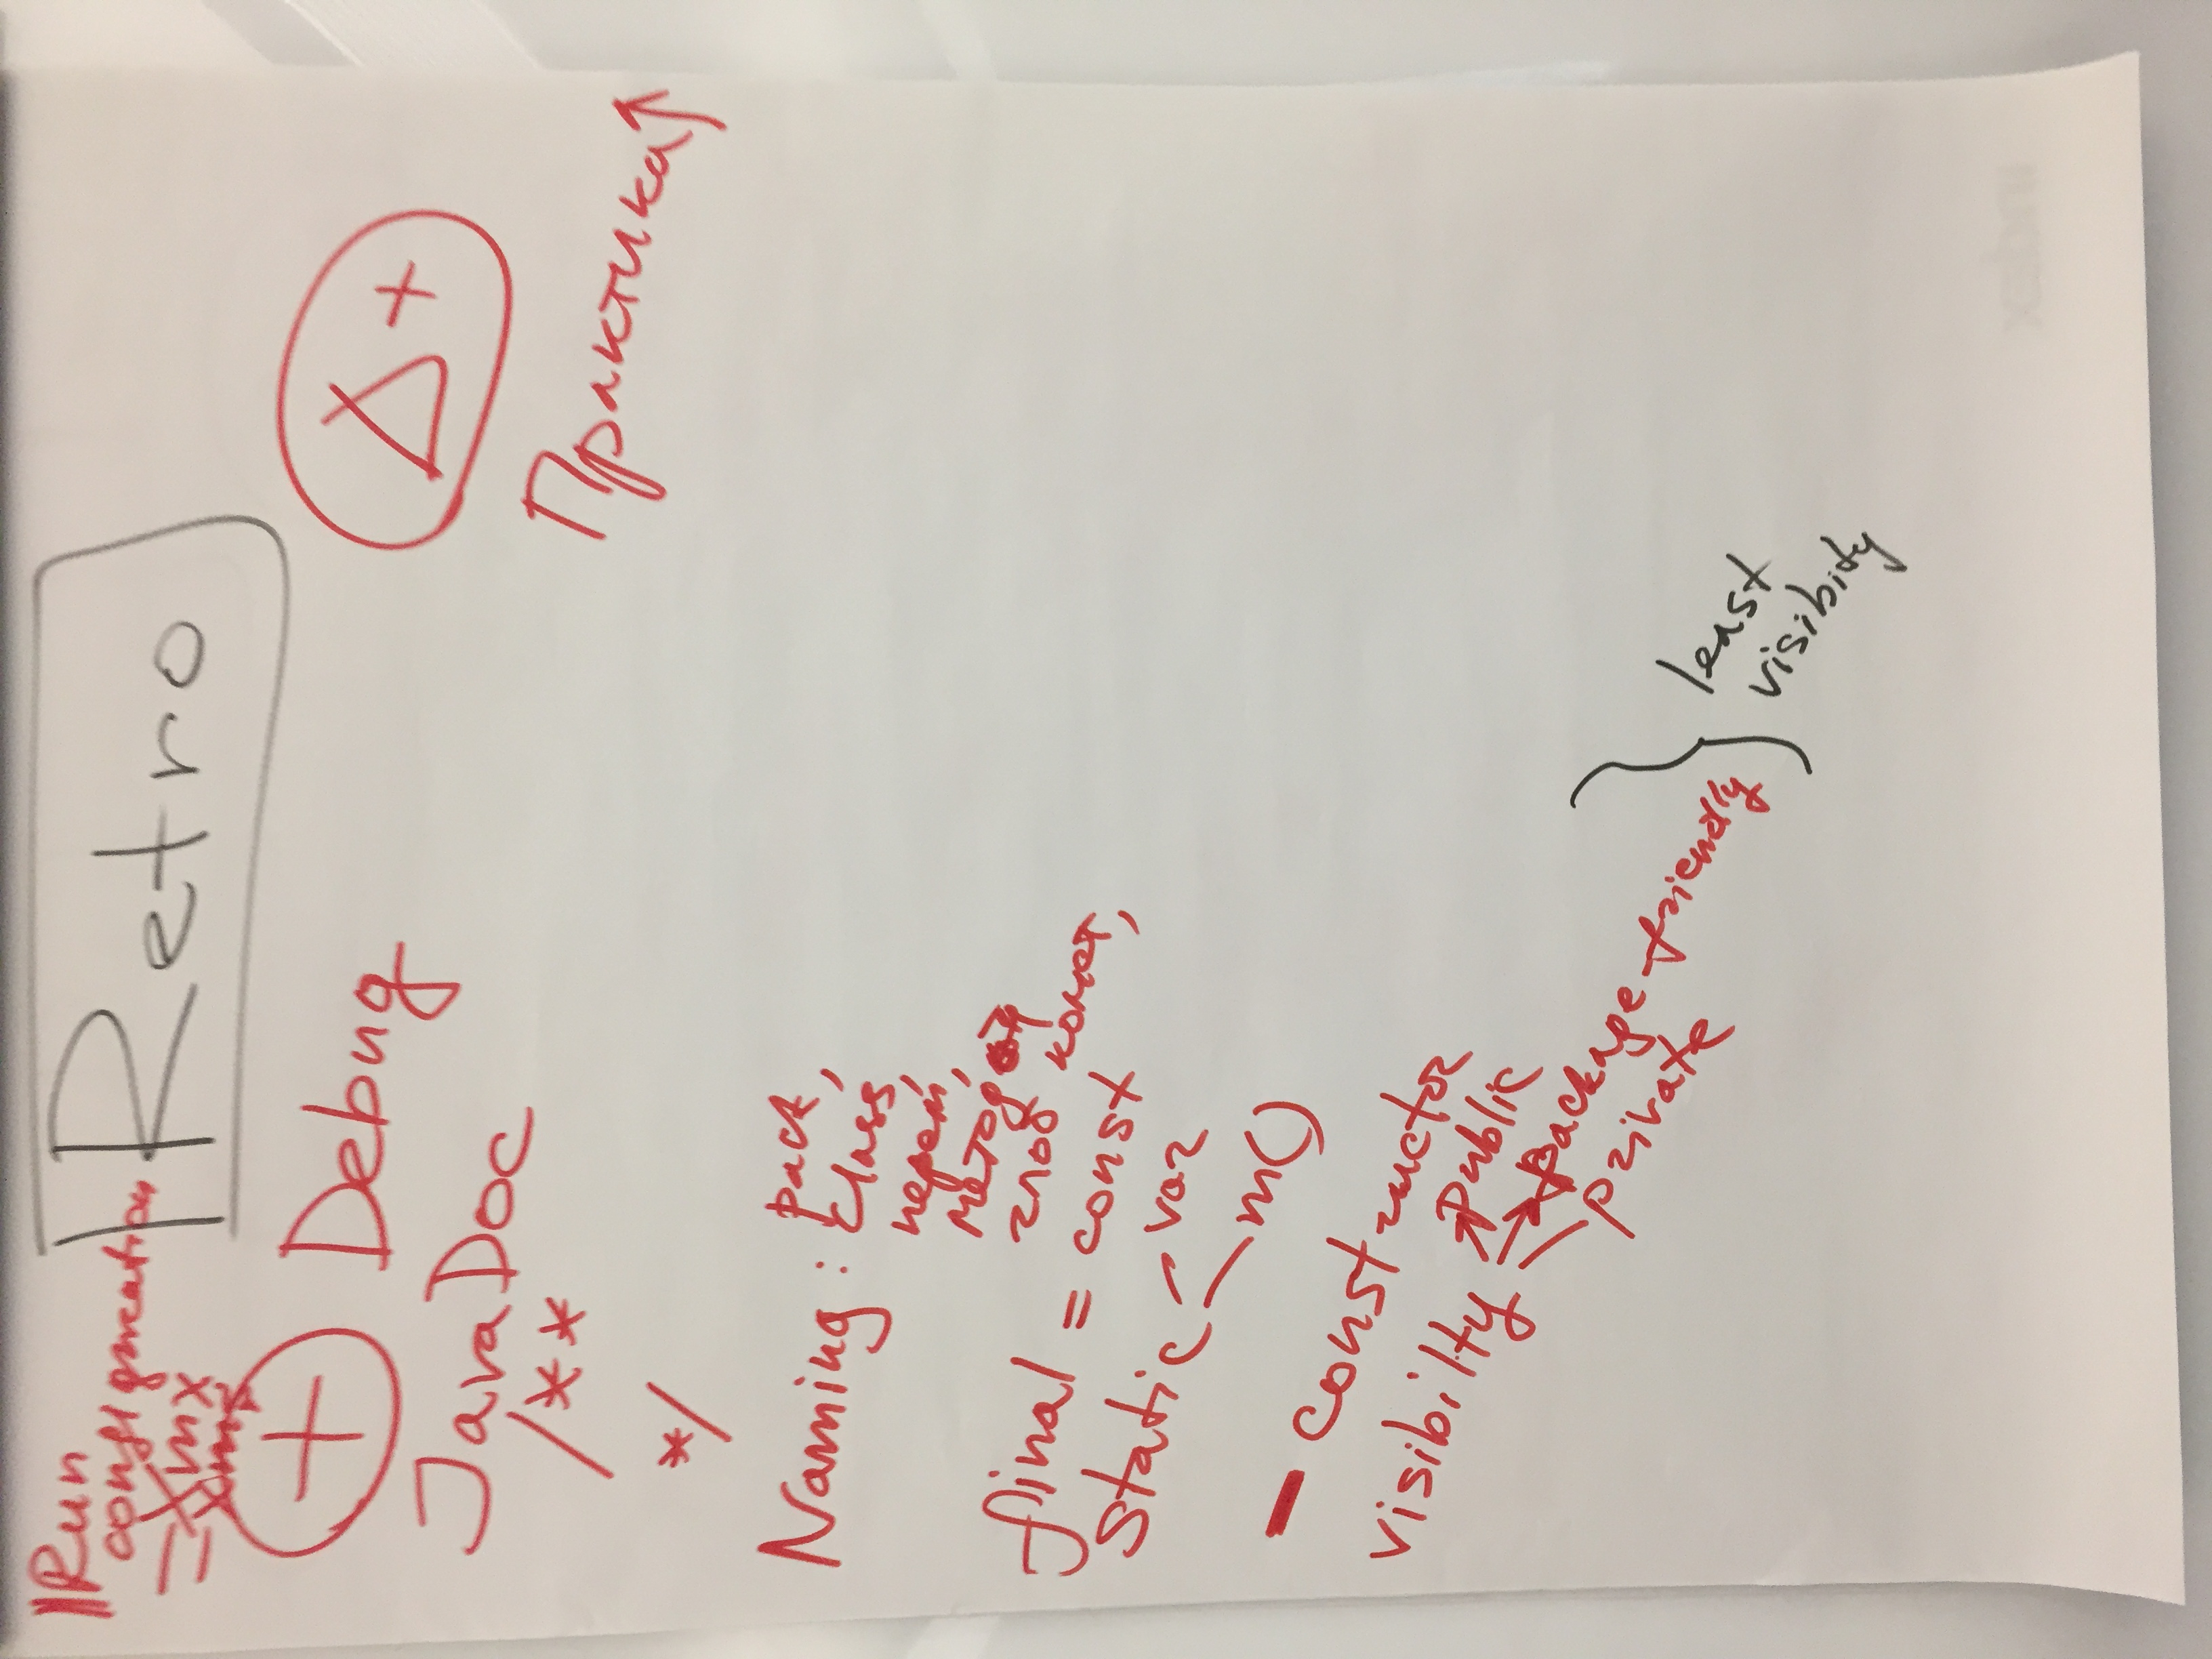 Retro
Run
configuration
-Xmx
-Xms
+ Debug
JavaDoc
/**
*/
Naming: pack,
class,
перем,
метод
глоб конст,
final = const
static var
m()
- constructor
visibilty public
package-friendly
private
least
visibity
Δ+
Практика↑
index